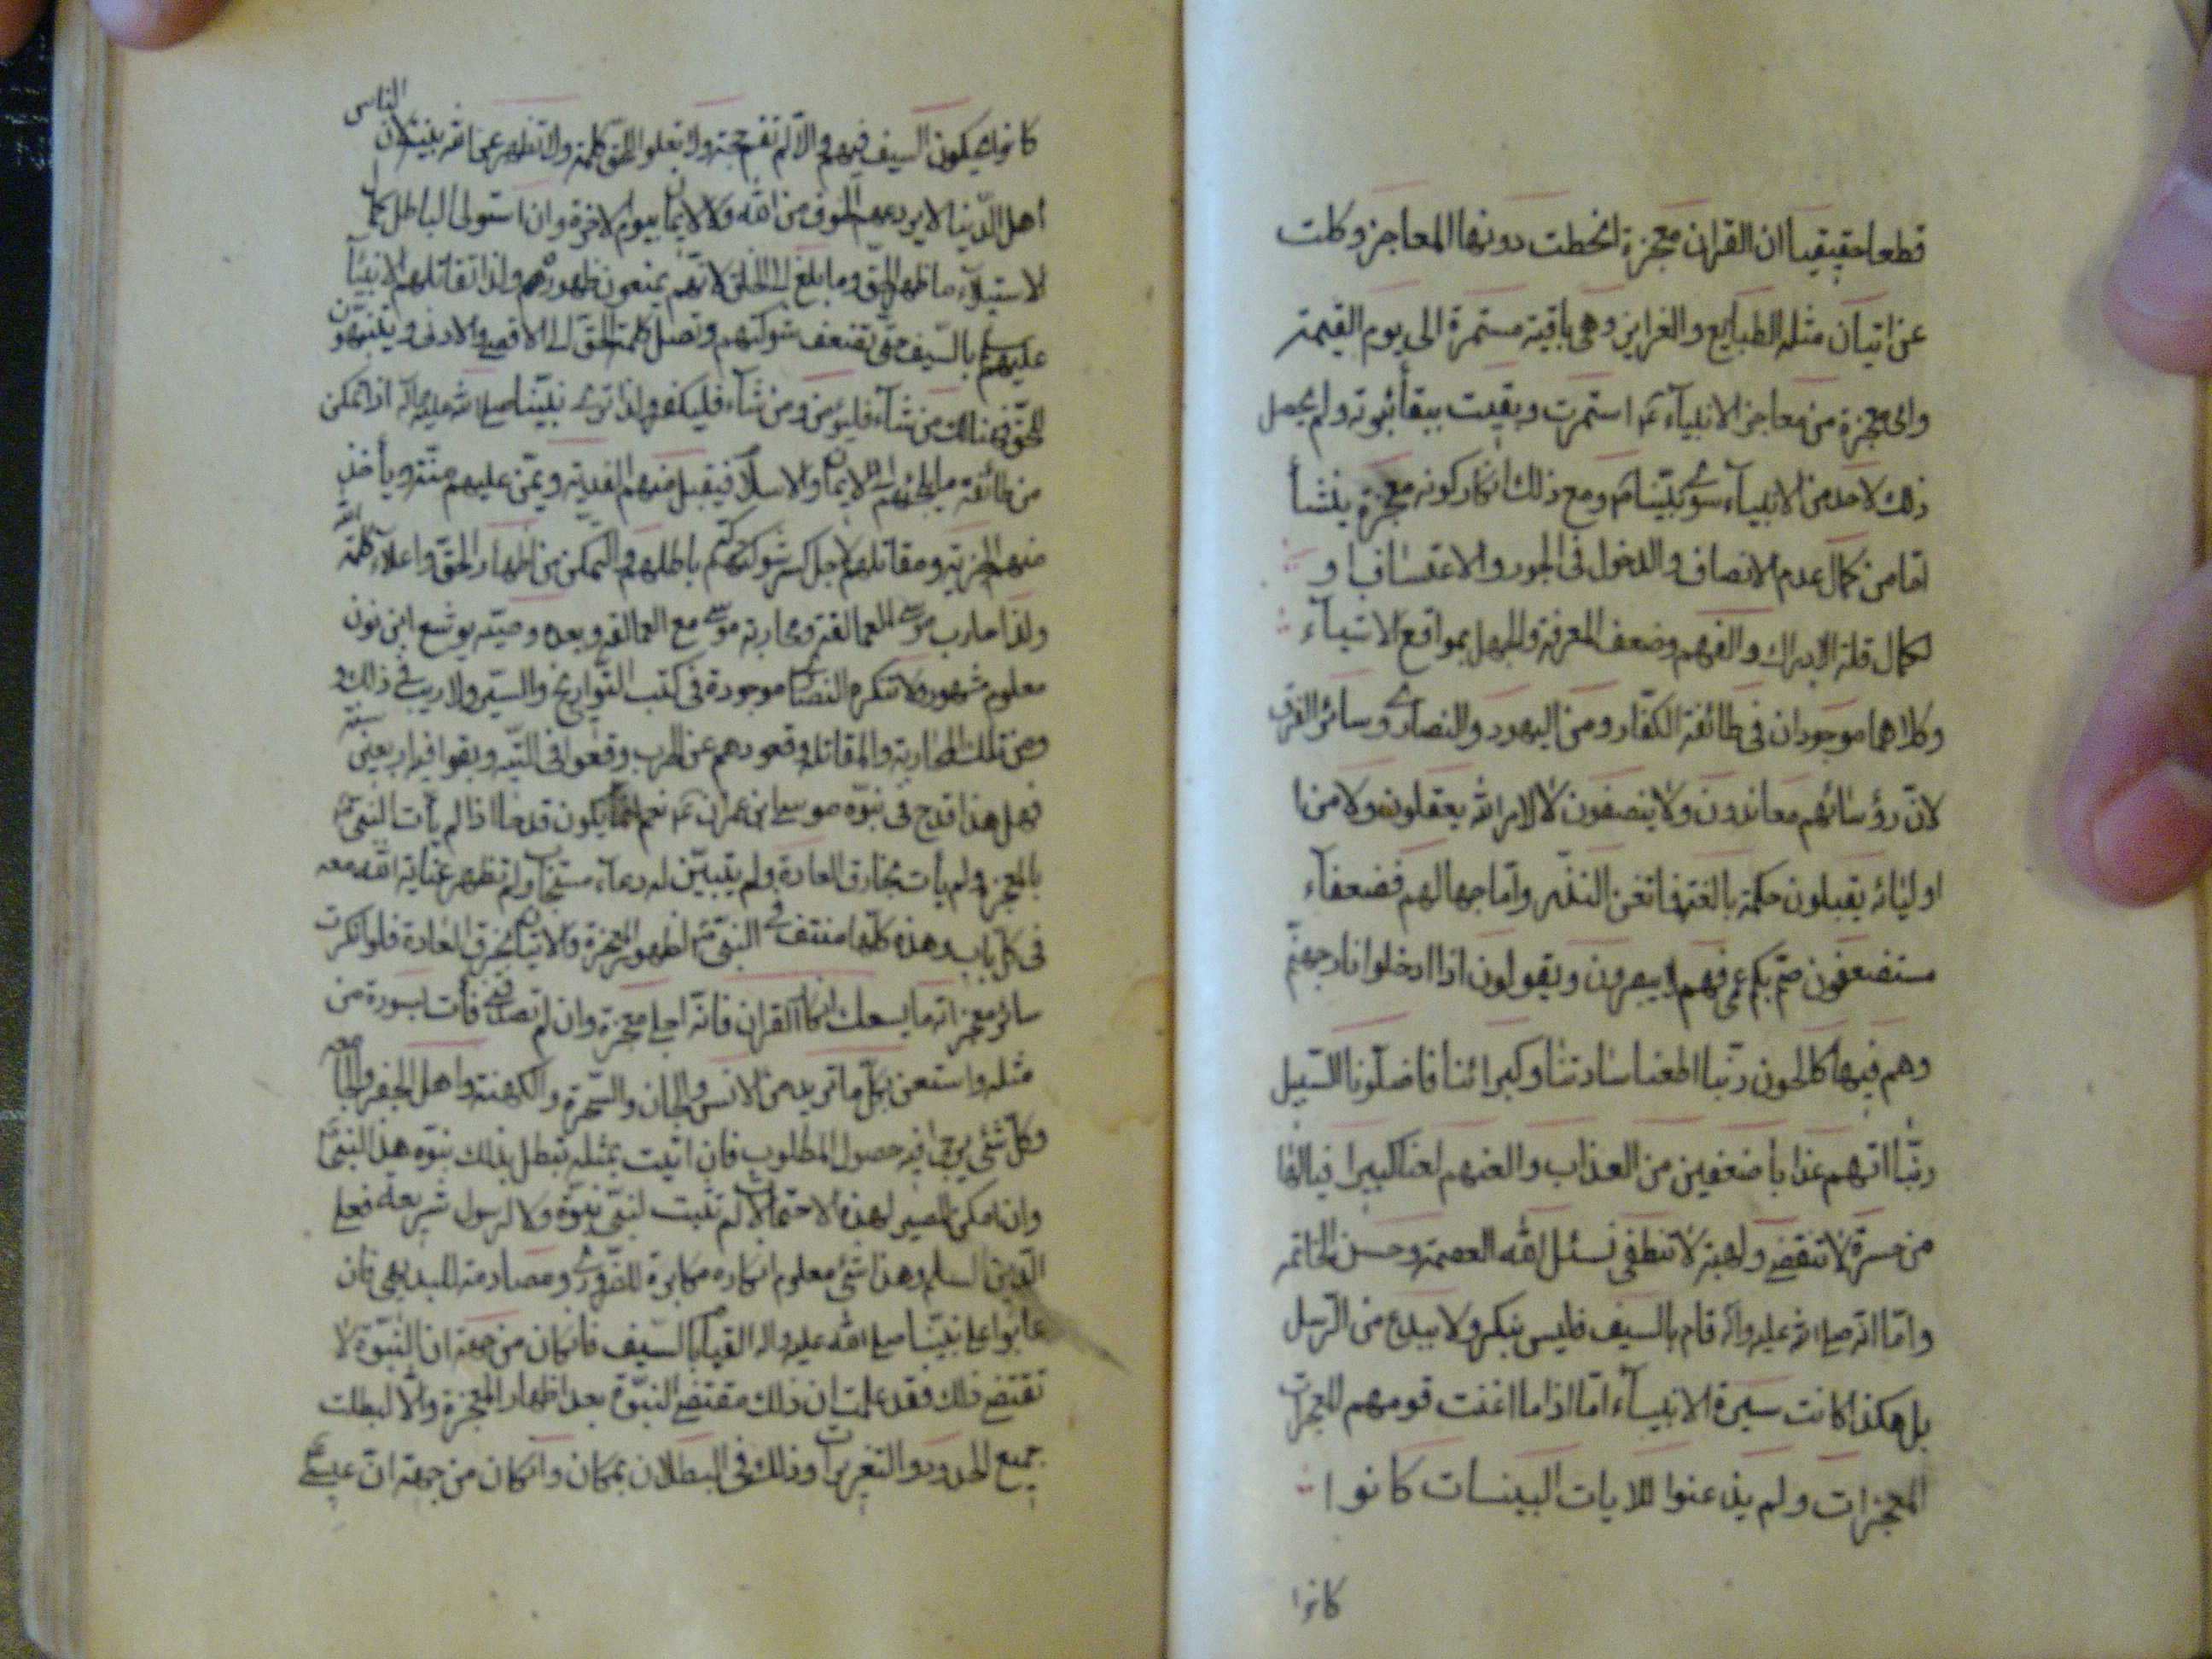 قطعا حقيقيا ان القران معجزة انحطت دونها المعاجز وكلت
عن اتيان مثله الطبايع والغرايز وهى باقية مستمرة الى يوم القيمة
واى معجزة من معاجز الانبياء ع استمرت وبقيت ببقاء نبوته ولم يحصل
ذلك لاحد من الانبياء سوى نبينا ص ومع ذلك انكار كونه معجزة ينشأ
اما من كمال عدم الانصاف والدخول فى الجور والاعتساف او
لكمال قلة الادراك والفهم وضعف المعرفة والجهل بمواقع الاشياء
وكلاهما موجودان فى طائفة الكفار ومن اليهود والنصارى وسائر الفرق
لان رؤسائهم معاندون ولا ينصفون لا لامر الله يعقلون ولا من
اوليائه يقبلون حكمة بالغة فما تغن النذر واما جهالهم فضعفاء
مستضعفون صم بكم عمى فهم لا يبصرون ويقولون اذا ادخلوا نار جهنم
وهم فيها كالحون ربنا اطعنا سادتنا وكبرائنا فاضلونا السبيل
ربنا اتهم عذابا ضعفين من العذاب والعنهم لعنا كبيرا فيالها
من حسرة لا تنقضى ولهبة لا تنطفى نسئل الله العصمة وحسن الخاتمة
واما انه صلى الله عليه واله قام بالسيف فليس بنكر ولا ببدع من الرسل
بل هكذا كانت سيرة الانبياء اما اذا ما اغنت قومهم المعجزات
المعجزات ولم يذعنوا للايات البينات كانوا
كانوا
كانوا يحكمون السيف فيهم والا لم تقم حجة ولا تعلوا للحق كلمة ولا تظهر عن الله بينة لان الناس
اهل الدنيا لا يردعهم الخوف من الله ولا الايمان بيوم الاخرة وان استولى الباطل كمال
الاستيلاء ما ظهر الحق وما بلغ الى الخلق لانهم يمنعون ظهوره ولذا تقاتلهم الانبياء
عليهم السلام بالسيف حتى تضعف شوكتهم وتصل كلمة الحق الى الاقصى والادنى ويتنبهون
للحق فهنالك من شاء فليؤمن ومن شاء فليكفر ولذا ترى نبينا صلى الله عليه واله اذا تمكن
من طائفة ما يلجئهم الى الايمان والاسلام فيقبل منهم الفدية ويمن عليهم منة ويأخذ
منهم الجزية ومقاتلهم لاجل كسر شوكتهم باطلهم والتمكن من اظهار الحق واعلاء كلمة الله
ولذا حارب موسى العمالقة ومحاربة موسى مع العمالقة وبعده وصيه يوشع ابن نون
معلوم مشهور ولا تنكره النصارى موجودة فى كتب التواريخ والسير ولا ريب فى ذلك و
من تلك المحاربة والمقاتلة وقعودهم عن الحرب وقعوا فى التيه وبقوا فيه اربعين سنة
فهل هذا قدح فى نبوة موسى ابن عمران ع نعم انما يكون قدحا اذا لم يأت النبى ص
بالمعجزة ولم يأت بخارق العادة ولم يتبين له دعاء مستجاب ولم تظهر عناية الله معه
فى كل باب وهذه كلها منتف فى النبى ص لظهور المعجزة والاتيان بخرق العادة فلو انكرت
سائر معجزاته ما يسعك انكار القران فانه اجلى معجزة وان لم تصدق فأت بسورة من
مثله واستعن بكل ما تريد من الانس والجان والسحرة والكهنة واهل الجفر والجامعة
وكل شئ يرجى فيه حصول المطلوب فان اتيت بمثله تبطل بذلك نبوة هذا النبى ص
وان امكن المصير لهذه الاحتمالات لم تثبت لنبى نبوة ولا لرسول شريعة فعلى
الدين السلام وهذا شئ معلوم انكاره مكابرة للضرورى ومصادمة للبديهى فان
عابوا على نبينا صلى الله عليه واله القيام بالسيف فانكان من جهة ان النبوة لا
تقتضى ذلك فقد علمت ان ذلك مقتضى النبوة بعد اظهار المعجزة والا لبطلت
جميع الحدود والتغريرات وذلك فى البطلان بمكان وانكان من جهة ان عيسى